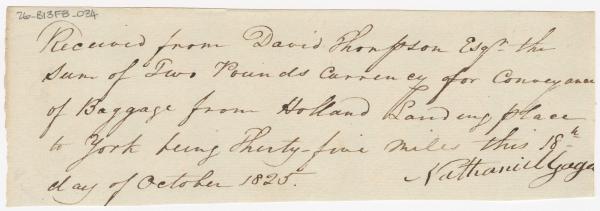 26-B13FB_034
Received from David Thompson Esqr. the
Sum of Two Pounds Currency for Conveyance
of Baggage from Holland Landing place
to York being Thirty-five miles this 18th
day of October 1825. Nathaniel Gager